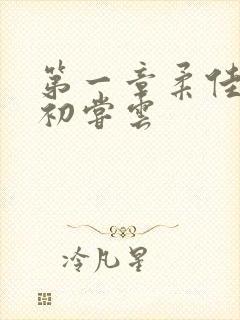 第一章柔佳
初尝云
冷凡星